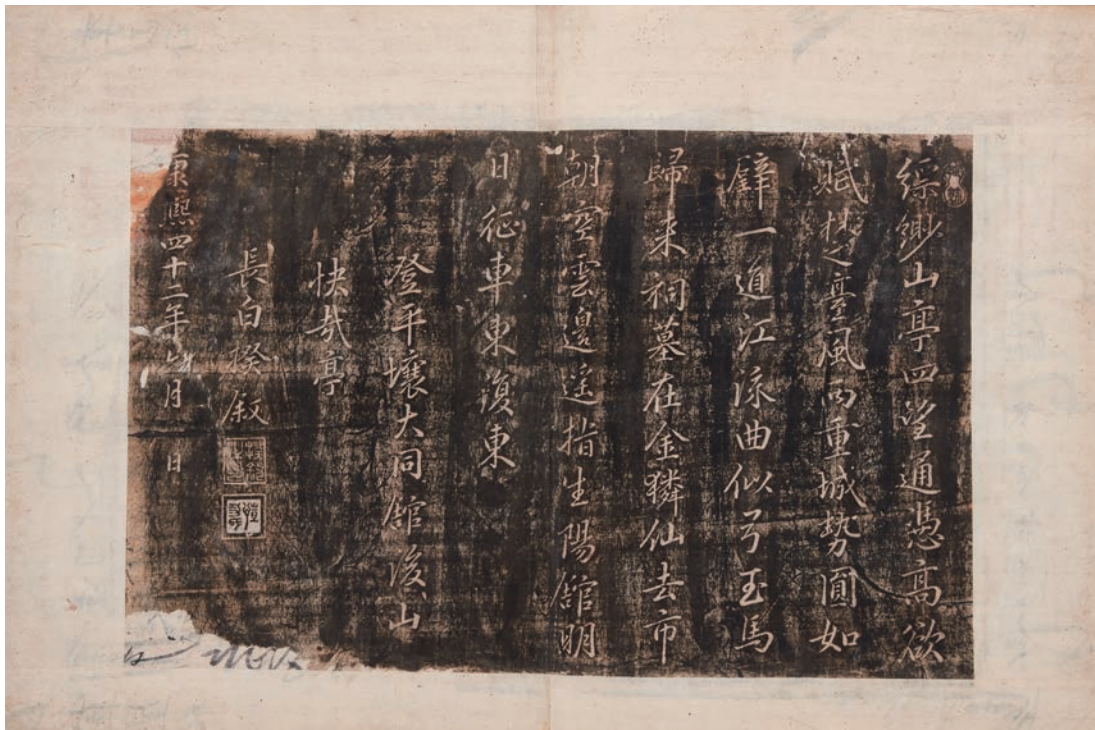 縹緲山亭四望通憑髙欲
賦楚臺風雨重城勢圓如
璧一道江流曲似弓玉馬
歸来祠墓在金麟仙去市
朝空雲邊遥指生陽館明
日征車東復東
登平壤大同館後山
快哉亭
長白揆叙
康熙四十二年 月 日